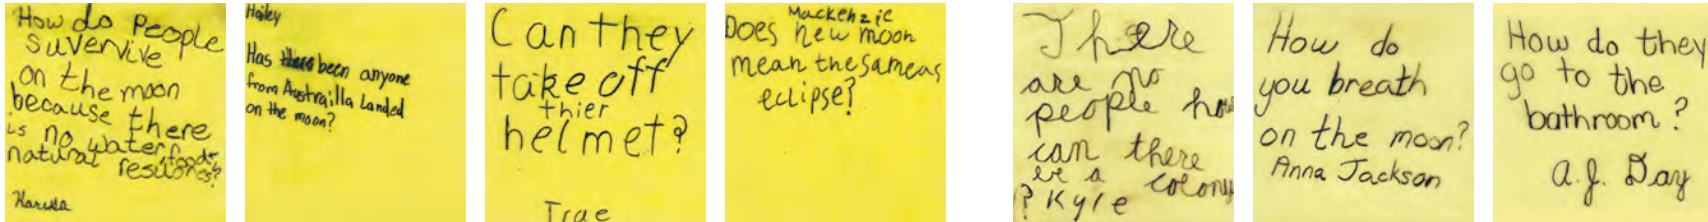 How do People
suvervive
on the moon
because there
is no water food
natural resources?
Karissa
Hailey
Has been anyone
from Austrailla Landed
on the moon?
Can they
take off
thier
helmet?
Trae
Mackenzie
Does new moon
mean the same as
eclipse?
There
are no
people how
can there
be a colony
? Kyle
How do
you breath
on the moon?
Anna Jackson
How do they
go to the
bathroom?
A.J. Day